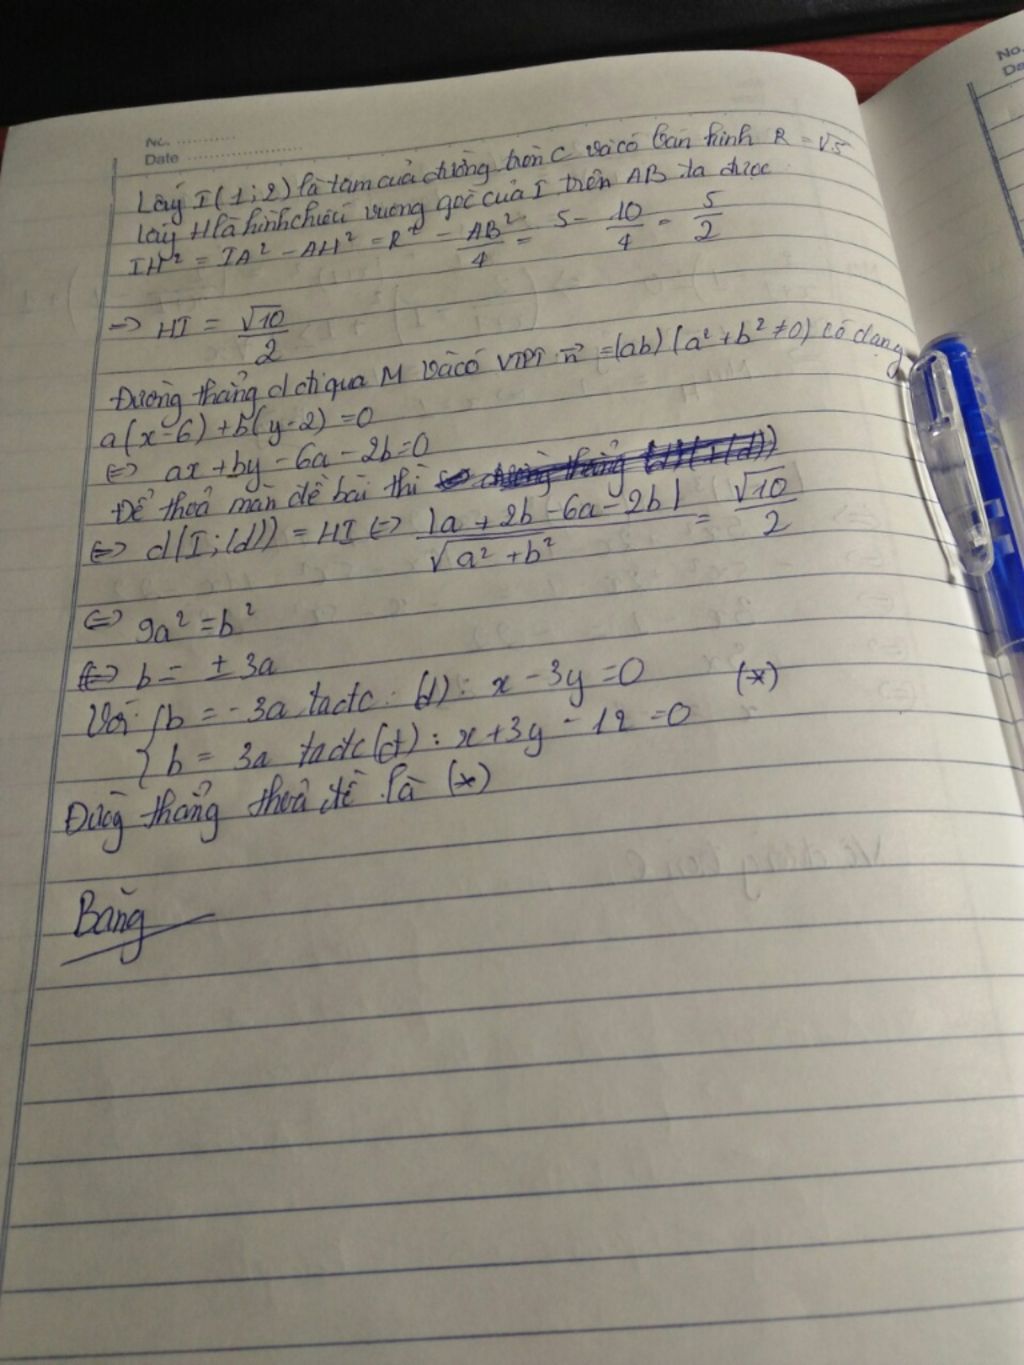 No.
Date
Lấy I(1;2) là tâm của đường tròn C và có bán kính R = √5
Lấy H là hình chiếu vuông góc của I trên AB ta được
IH² = IA² - AH² = R² - AB²/4 = 5 - 10/4 = 5/2
=> HI = √10/2
Đường thẳng d đi qua M và có VTPT n⃗ = (ab) (a² + b² ≠ 0) có dạng
a(x-6) + b(y-2) = 0
<=> ax + by - 6a - 2b = 0
Để thoả mãn đề bài thì
<=> d(I;(d)) = HI <=> |a + 2b - 6a - 2b|/√a² + b² = √10/2
<=> 9a² = b²
<=> b = ± 3a
Với { b = -3a tadc (d): x - 3y = 0 (*)
b = 3a tadc (d): x + 3y - 12 = 0
Đường thẳng thoả đề là (*)
Băng
No.
Da